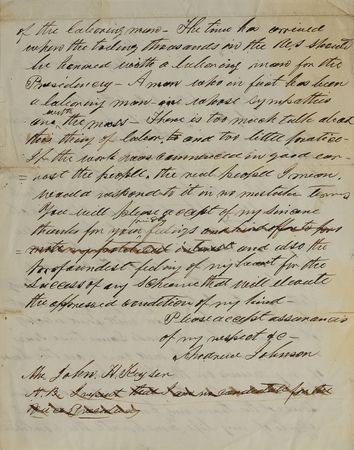 of the laboring man — The time has arrived
when the toiling thousands in the U.S should
be honored with a laboring man for the
Presidency — A man who in fact has been
a laboring man one whose Sympathies
are with the mass — There is too much talk about
this thing of labor, and too little practice —
If the work was commenced in good
the people, the real people I mean,
would respond to it in no mistake terms
You will please accept of my sincere
thanks for your kindly feelings
and also the
Profoundest feeling of my heart for the
Success of any Scheme that will elevate
the oppressed condition of my kind —
Please accept assurances
of my respect &c —
Andrew Johnson
Mr John. H. Keyser
N.B. I repeat that I am no candidate for the
Presidency